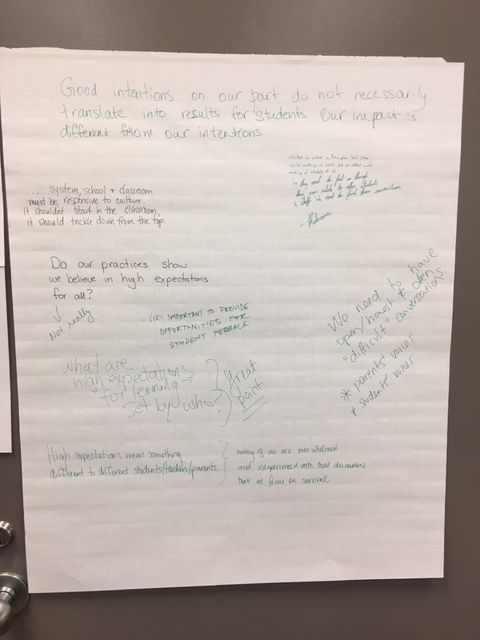 Good intentions on our part do not necessarily
translate into results for students. Our impact is
different from our intentions
... system, school + classroom
must be responsive to culture.
It shouldn't start in the classroom,
it should trickle down from the top.
Do our practices show
we believe in high expectations
for all?
Not really
- VERY IMPORTANT TO PROVIDE
OPPORTUNITIES FOR
STUDENT FEEDBACK
We need to have
open/honest & often
"difficult" conversations
* parents' voices
* students' voices
what are
high expectations
for learning?
Set by who?
Great
point
High expectations mean something
different to different students/teachers/parents.
many of us are overwhelmed
and inexperienced with these discussions
that we focus on survival